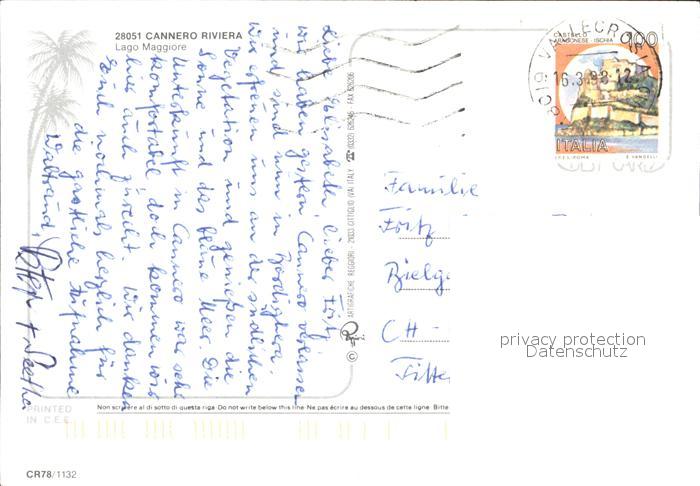 28051 CANNERO RIVIERA
Lago Maggiore
Liebe Elisabeth, lieber Fritz,
wir haben gestern Cannero verlassen
und sind nun in Bordighera.
wir erfreuen uns an der südlichen
Vegetation und genießen die
Sonne und das blaue Meer. Die
Unterkunft in Cannero war sehr
komfortabel doch kommen wir
hier auch zurecht. Wir danken
Euch nochmals herzlich für
die gastliche Aufnahme
Waltraud,
© ARTIGRAFICHE REGGIORI - 21033 CITTIGLIO (VA) ITALY ☎ (0332) 626245 FAX 626206
CASTELLO ARAGONESE - ISCHIA 100
16.3.93-12
ITALIA
I.P.Z.S. ROMA E. VANGELLI
Familie
Fritz
CH -
privacy protection
Datenschutz
PRINTED
IN C.E.E.
Non scrivere al di sotto di questa riga - Do not write below this line - Ne pas écrire au dessous de cette ligne - Bitte
CR78/1132